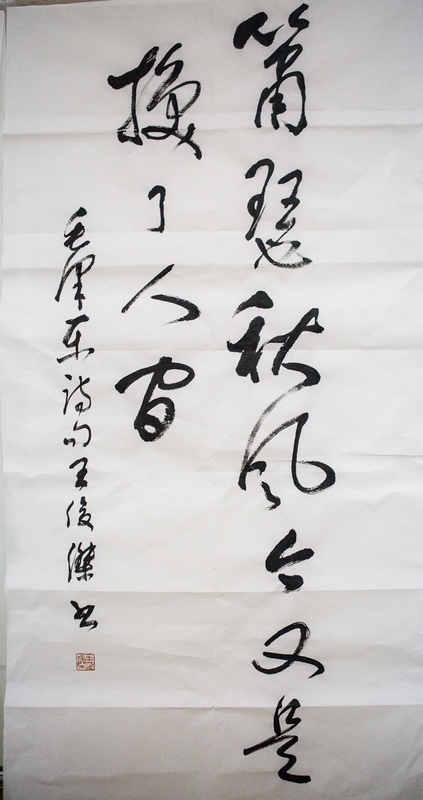 箫瑟秋风今又是
换了人间
毛泽东诗句王俊杰书